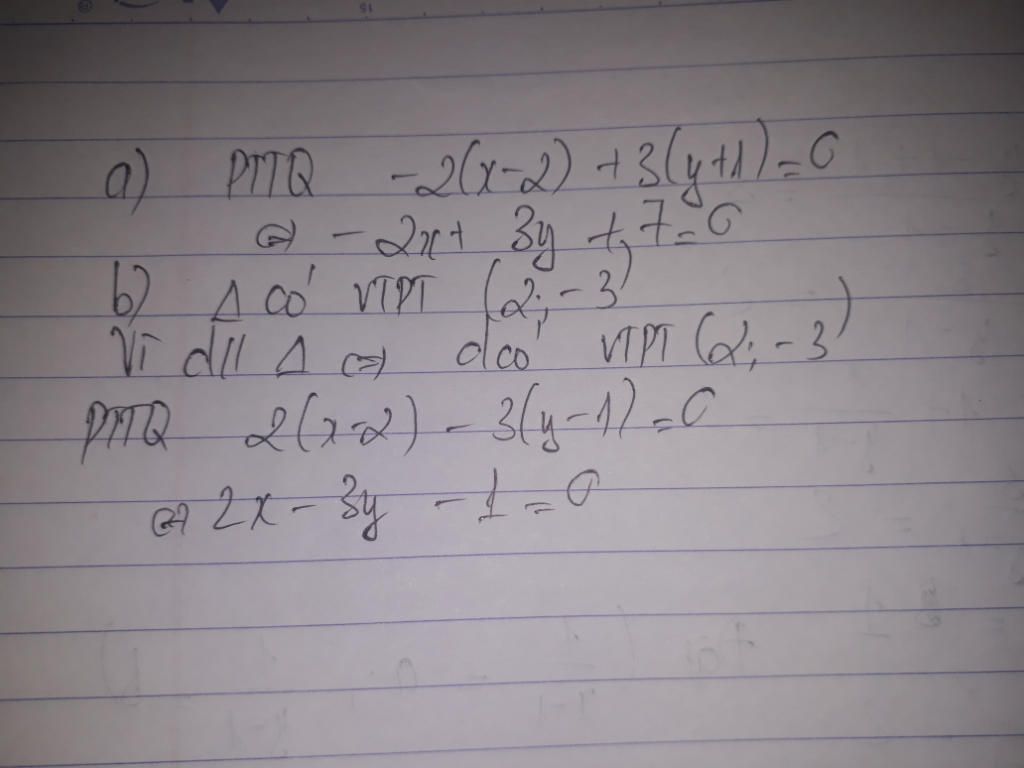 a) PTTQ -2(x-2) +3(y+1)=0
⇔ -2x+ 3y +7=0
b) Δ có VTPT (2;-3)
Vì d// Δ ⇔ d có VTPT (2;-3)
PTTQ 2(x-2) - 3(y-1)=0
⇔ 2x - 3y - 1 = 0